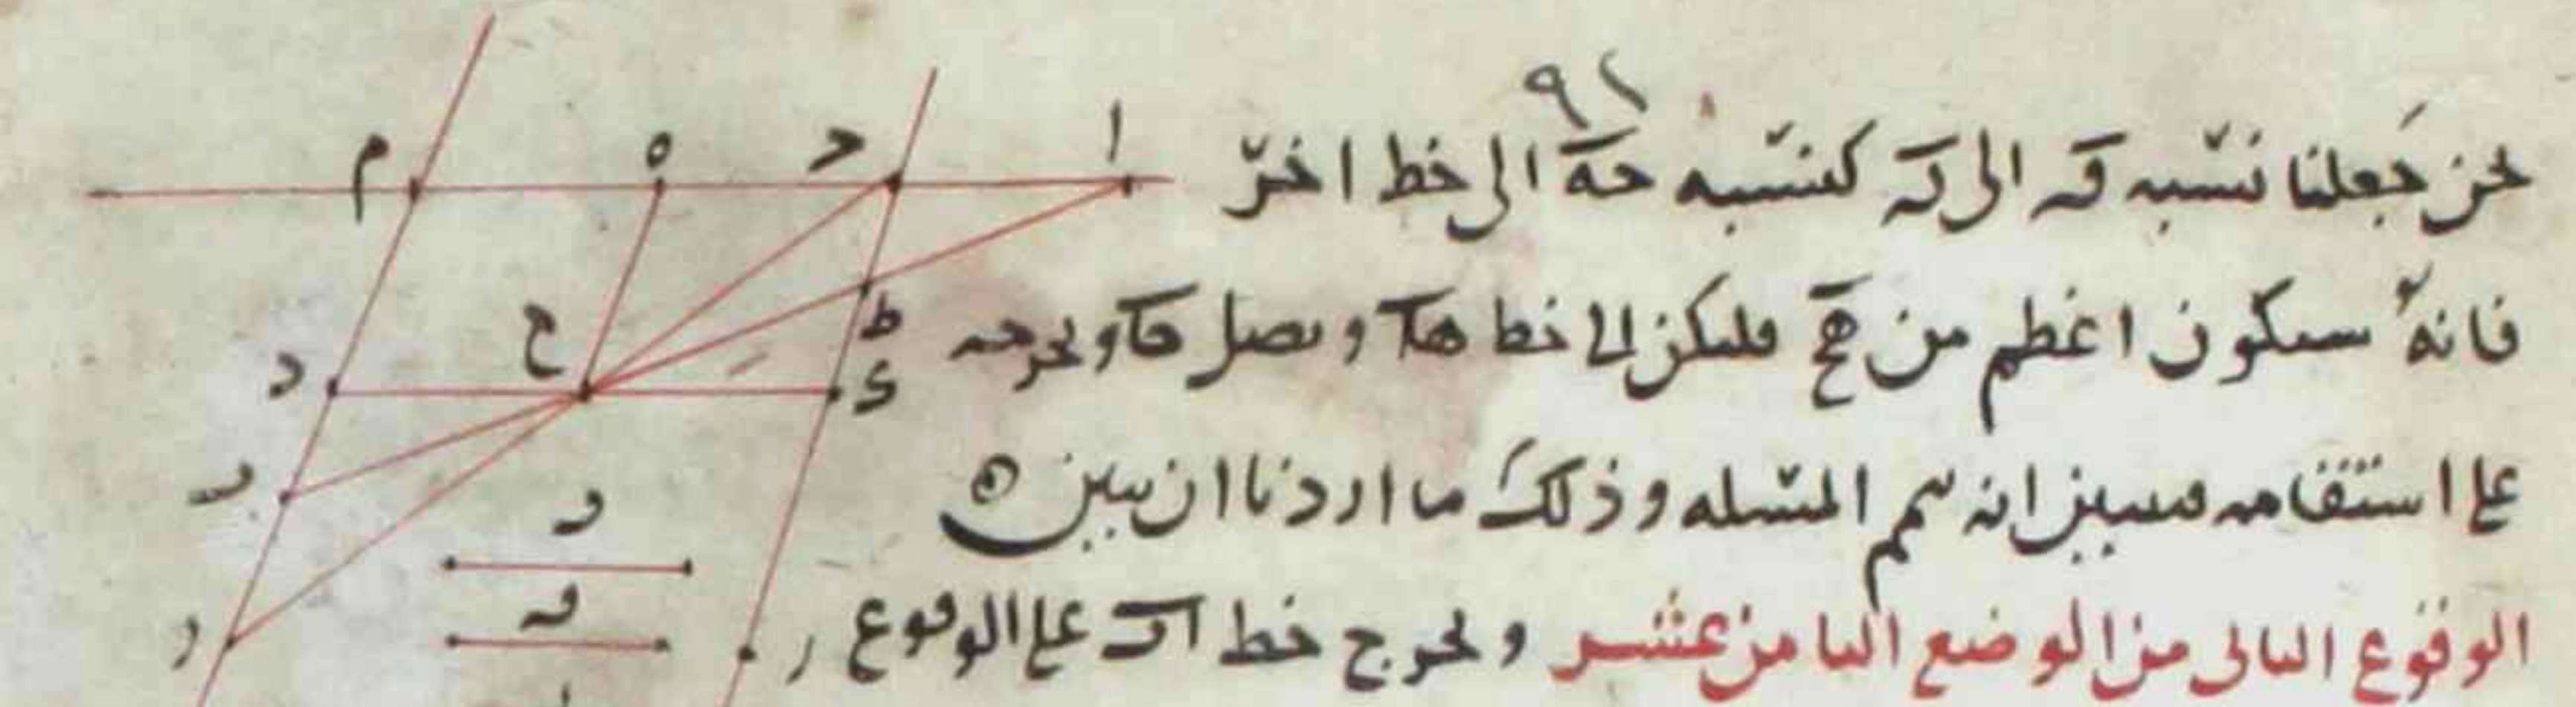 ٩١
نحن جعلنا نسبه قه الى كه كنسبه حه الى خط اخر
فانه سيكون اعظم من هح فليكن الى خط ها ونصل حا ونخرجه
على استقامه فيتبين انه تتم المسله وذلك ما اردنا ان نبين ۞
الوقوع الثانى من الوضع الثامن عشر ونخرج خط على الوقوع
م ه ح ا
ح ط
د ى
و
قه
ر